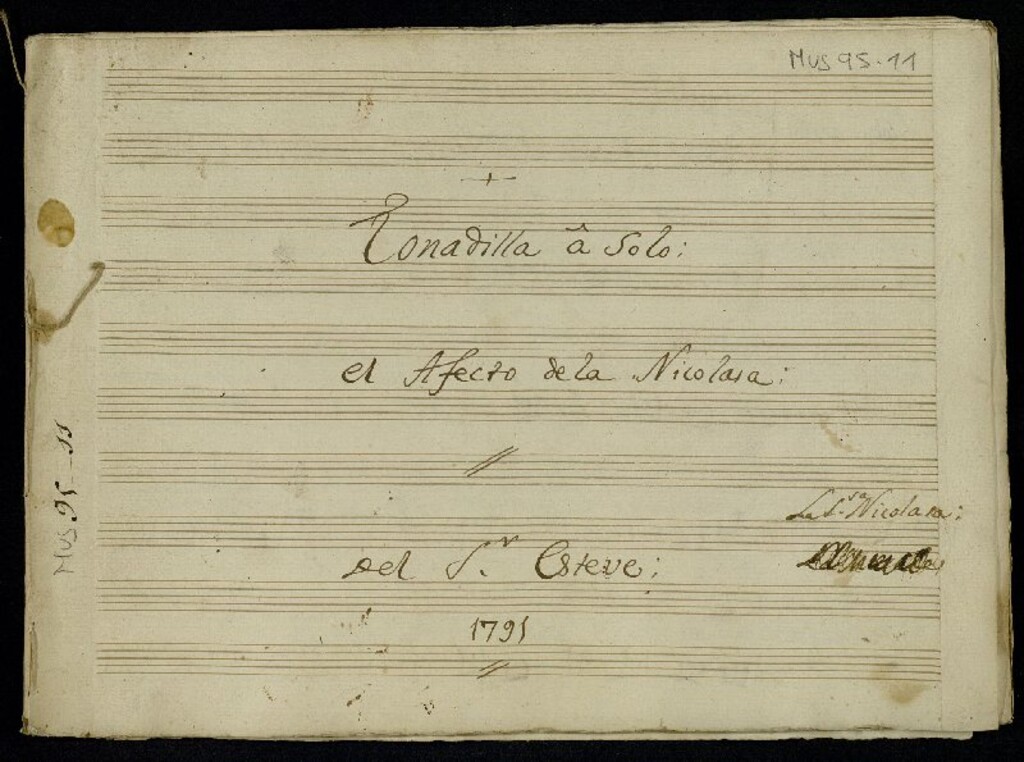 MUS 95-11
Tonadilla â Solo:
el Afecto de la Nicolasa:
La S.ra Nicolasa:
del S.r Esteve:
1791
MUS 95-11